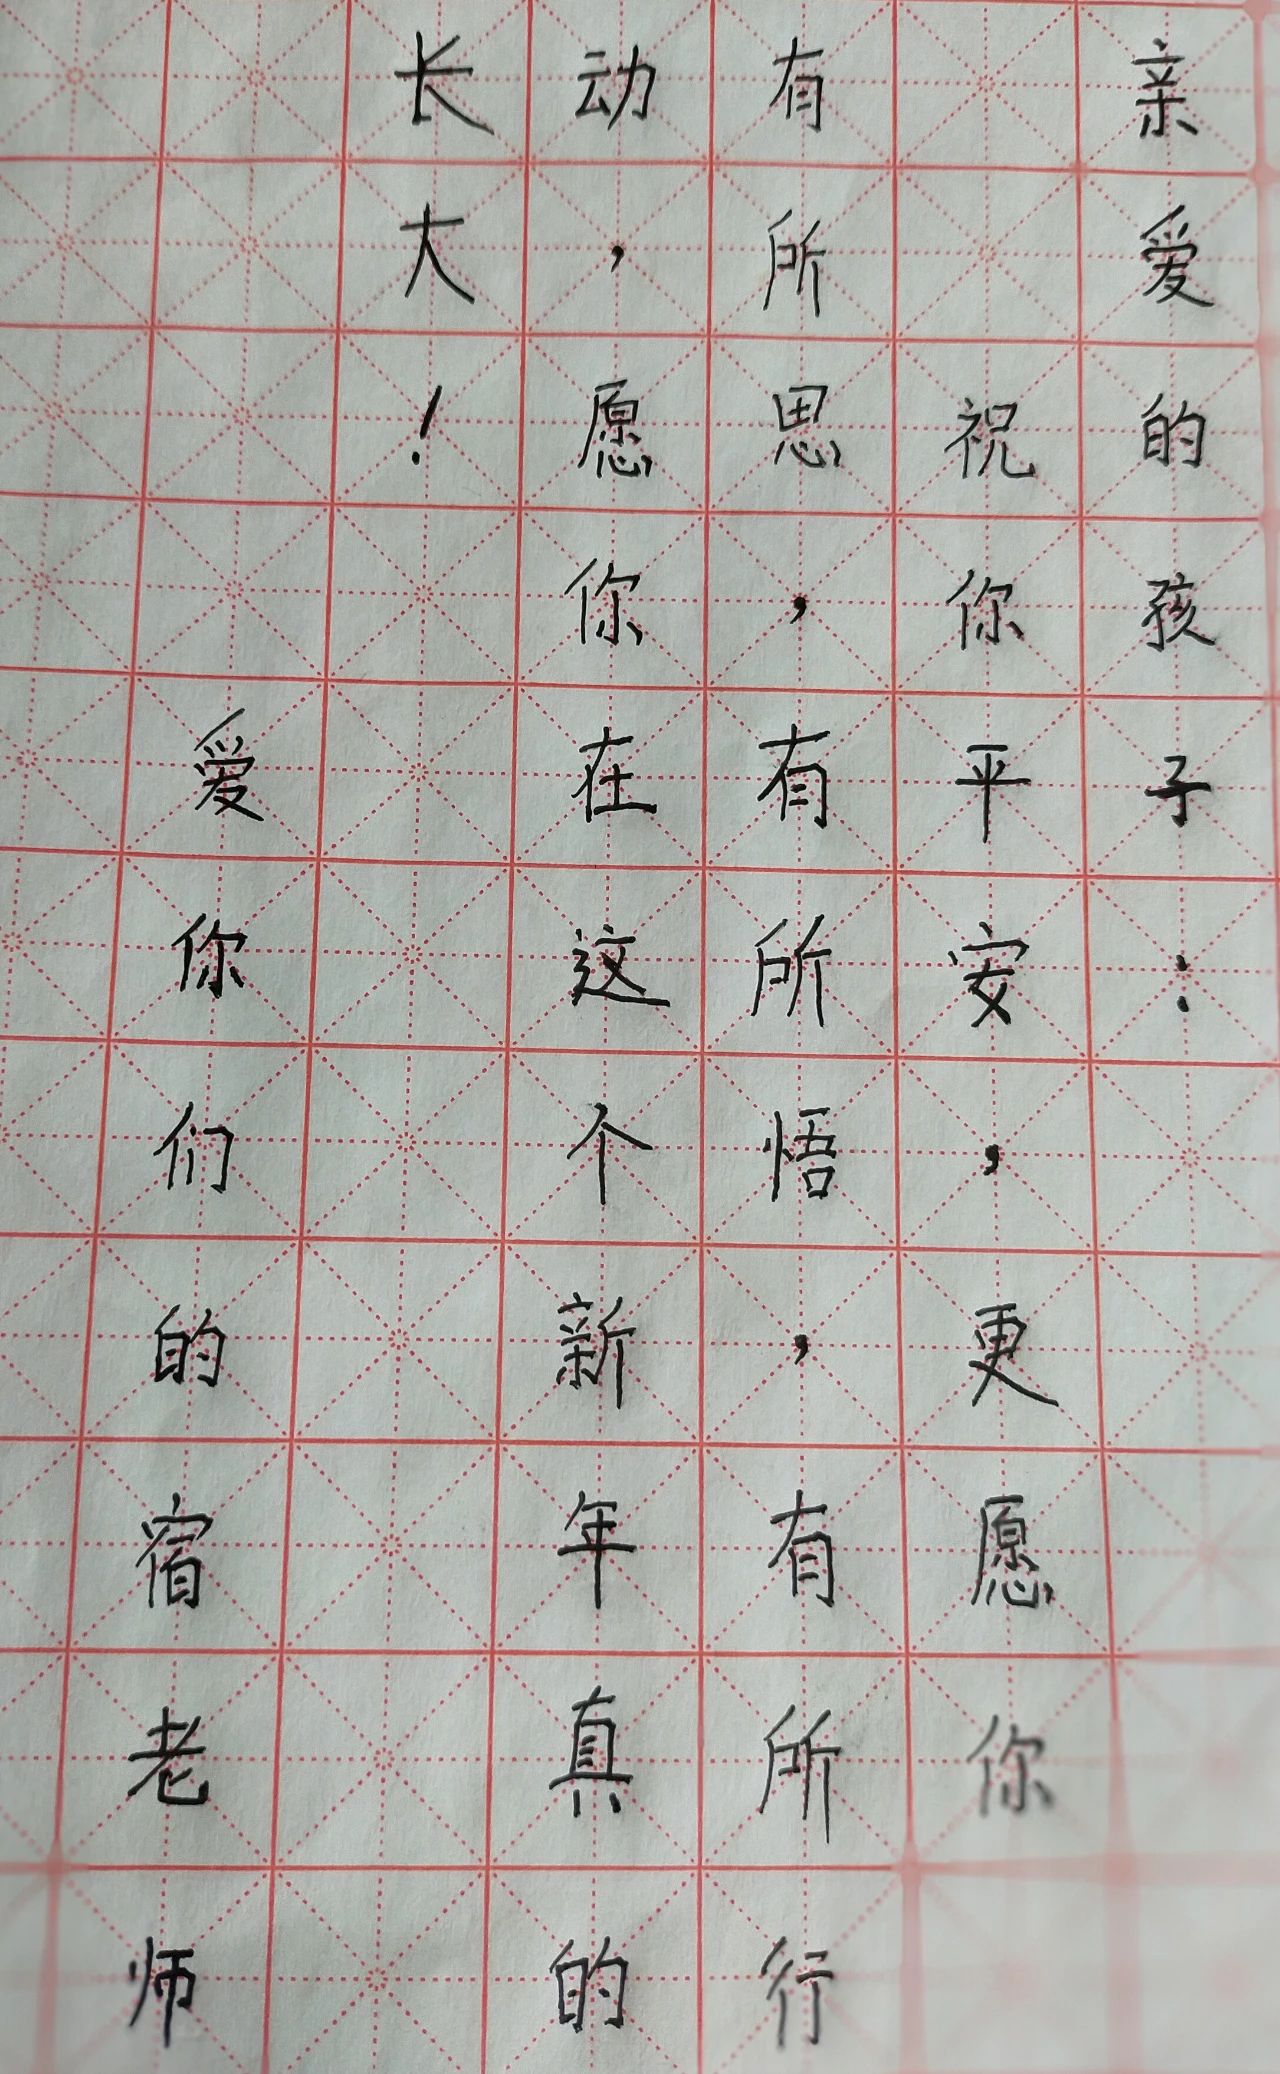 亲爱的孩子：
祝你平安，更愿你
有所思，有所悟，有所行
动，愿你在这个新年真的
长大！
爱你们的宿老师